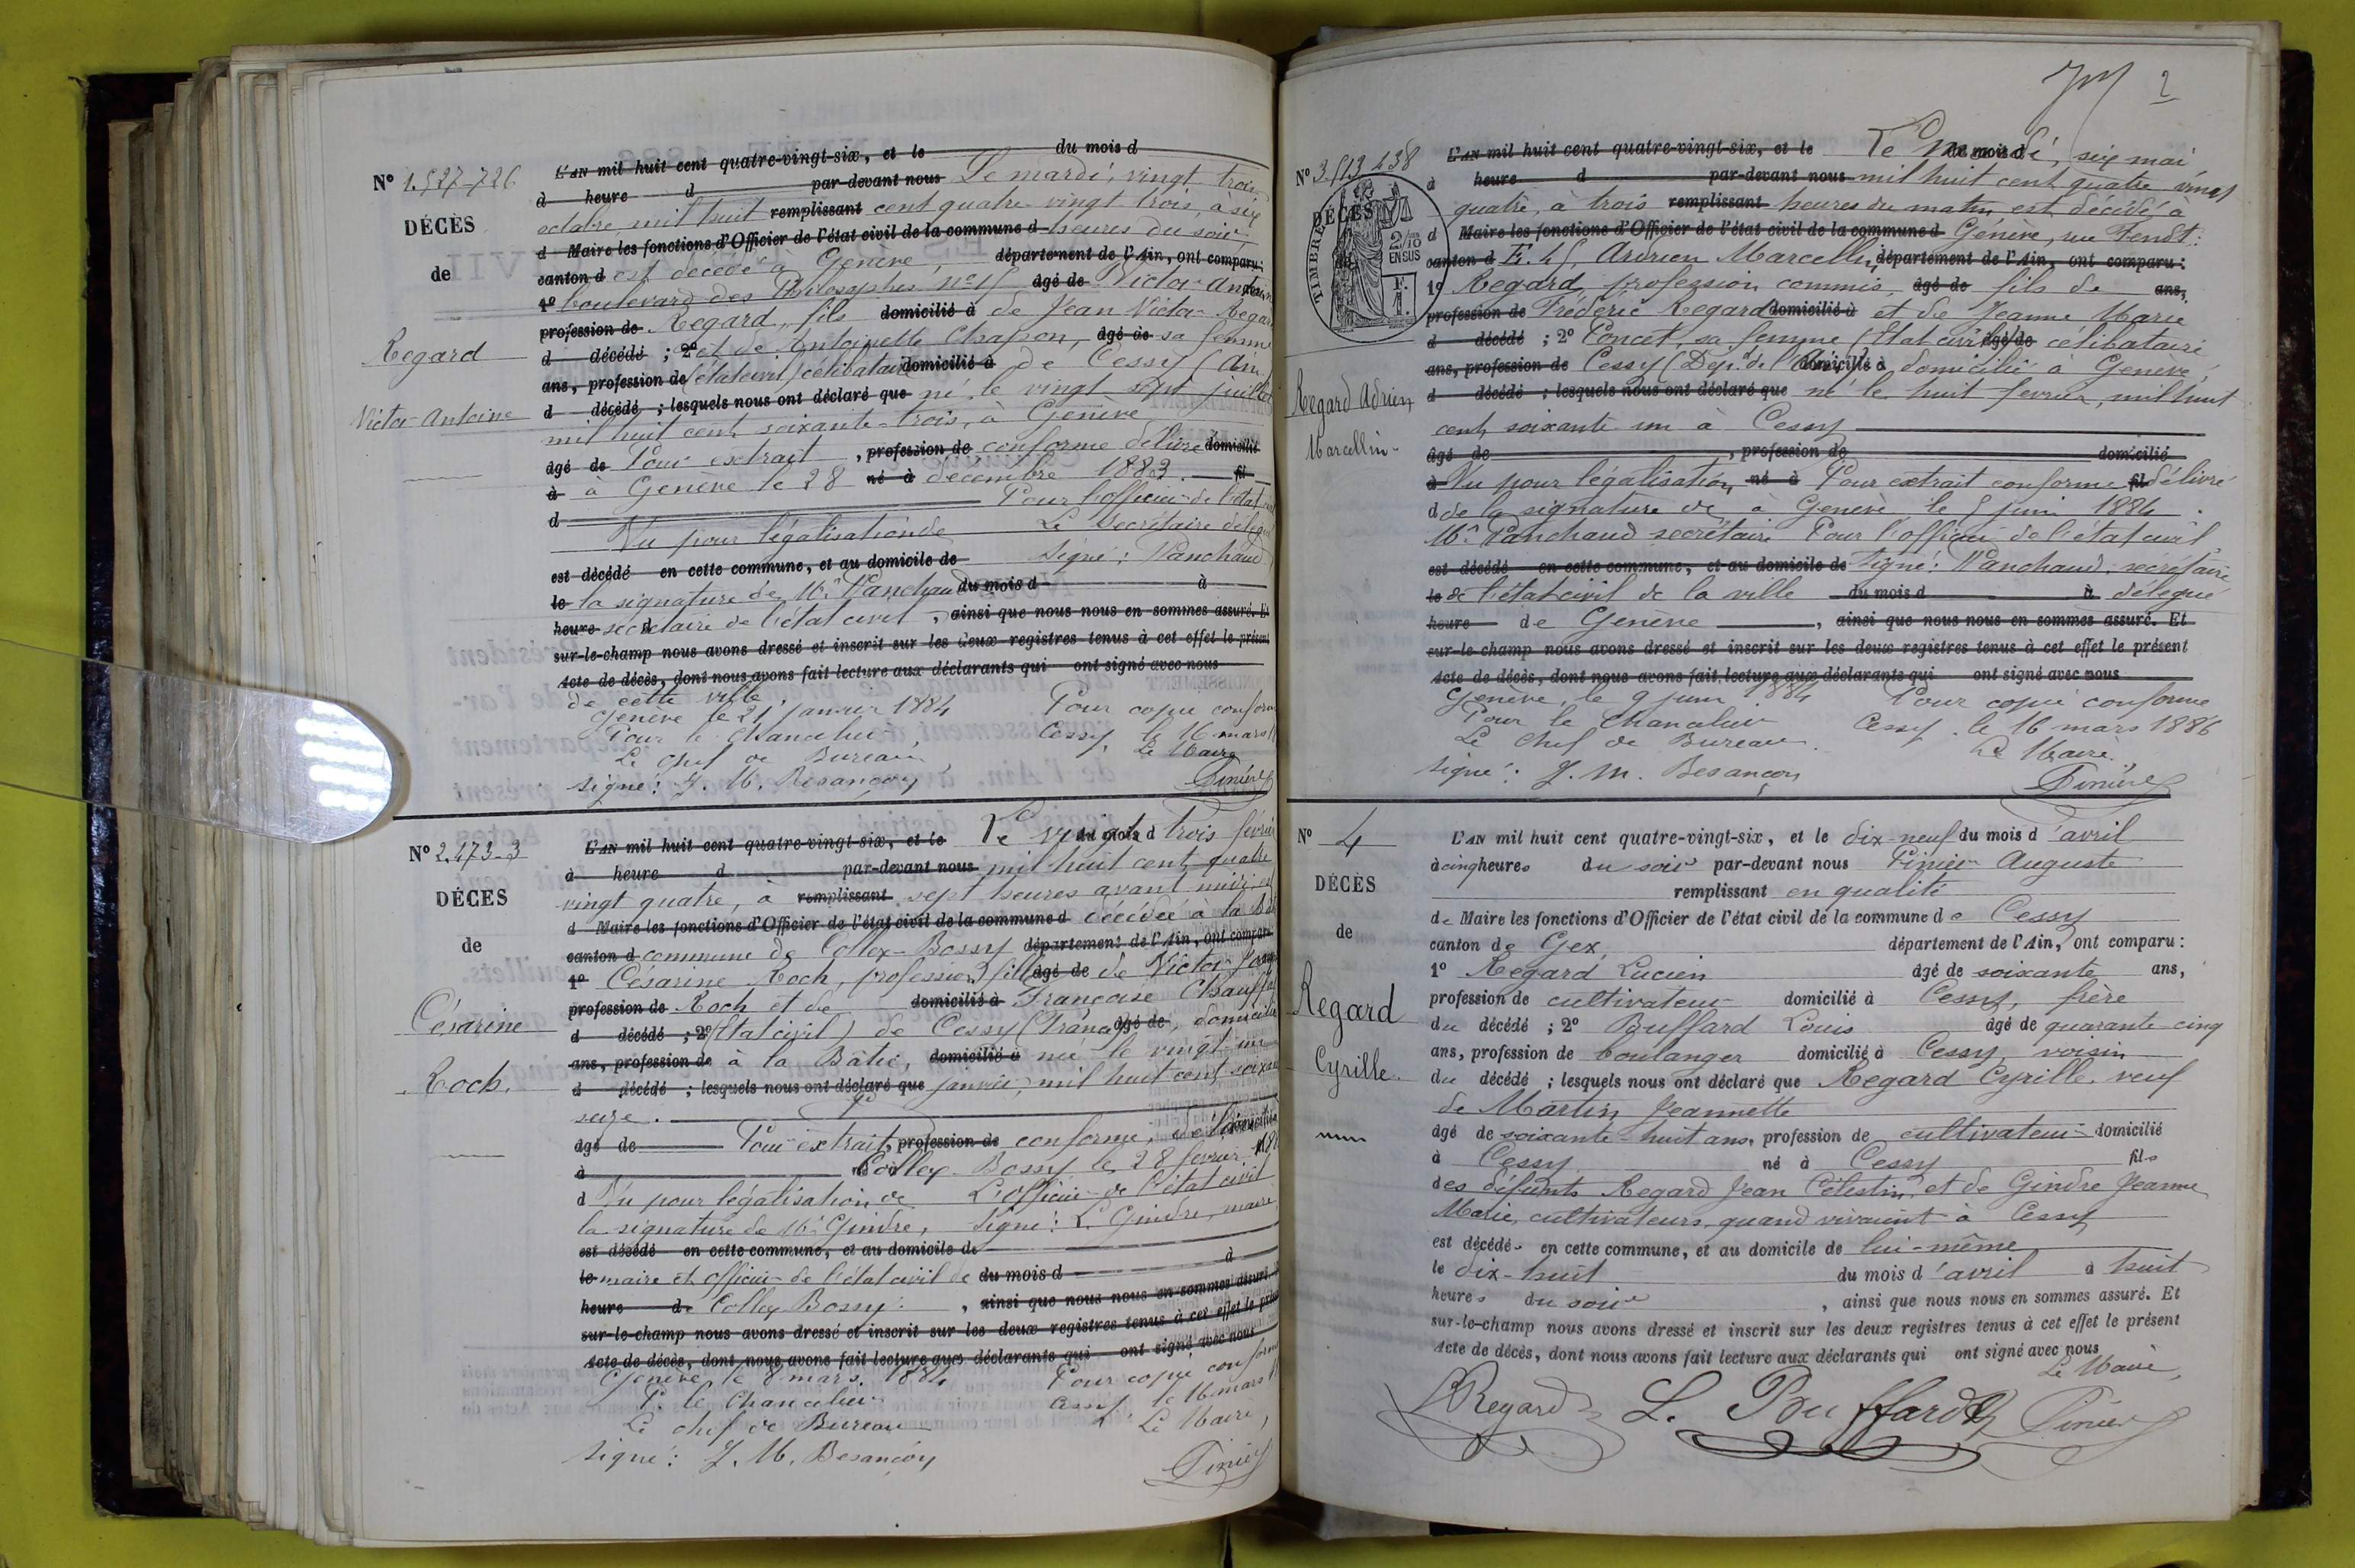 N° 1.527-726
DÉCÈS
de
Regard
Victor Antoine
L'AN mil huit cent quatre-vingt-six, et le du mois d
à heure d par-devant nous Le mardi, vingt trois
octobre, mil huit remplissant cent quatre vingt trois, à six
d Maire les fonctions d'Officier de l'état civil de la commune d heures du soir,
canton d est décédé à Genève, département de l'Ain, ont comparu:
1° boulevard des Philosophes n° 15 âgé de Victor Antoine
profession de Regard, fils domicilié à de Jean Victor Regard
d décédé ; 2° et de Antoinette Chapon, âgé de sa femme
ans, profession de (état civil) célibataire domicilié à de Cessy (Ain)
d décédé ; lesquels nous ont déclaré que né le vingt sept juillet
mil huit cent soixante-trois, à Genève
âgé de Pour extrait , profession de conforme délivré domicilié
à à Genève le 28 né à décembre 1883. fil
d Pour l'officier de l'état civil
Vu pour légalisation de Le secrétaire délégué
est décédé en cette commune, et au domicile de Signé : Panchaud
le la signature de Mr Panchaud du mois d à
heure secrétaire de l'état civil , ainsi que nous nous en sommes assuré. Et
sur-le-champ nous avons dressé et inscrit sur les deux registres tenus à cet effet le présent
Acte de décès, dont nous avons fait lecture aux déclarants qui ont signé avec nous
de cette ville.
Genève le 21 janvier 1884 Pour copie conforme
Pour le Chancelier, Cessy le 16 mars
Le chef de Bureau, Le Maire
signé : J. M. Besançon Pinier
N° 2.173-3
DÉCÈS
de
Césarine
Roch.
L'AN mil huit cent quatre-vingt-six, et le Le vingt du mois d trois février
à heure d par-devant nous mil huit cent quatre
vingt quatre, à remplissant sept heures avant midi, est
d Maire les fonctions d'Officier de l'état civil de la commune d décédée à la
canton d commune de Collex-Bossy département de l'Ain, ont comparu
1° Césarine Roch, profession fille âgé de de Victor
profession de Roch et de domicilié à Françoise
d décédé ; 2° (Etat civil) de Cessy (France) âgé de, domiciliée
ans, profession de à la Bâtie, domicilié à née le vingt un
d décédé ; lesquels nous ont déclaré que janvier, mil huit cent soixante
seize.
âgé de Pour extrait, profession de conforme, délivré domicilié
à né à Collex-Bossy le 28 février
d Vu pour légalisation de L'officier de l'état civil
la signature de Mr Gindre, Signé : L. Gindre, maire
est décédé en cette commune, et au domicile de
le maire et officier de l'état civil de du mois d à
heure de Collex Bossy. , ainsi que nous nous en sommes assuré. Et
sur-le-champ nous avons dressé et inscrit sur les deux registres tenus à cet effet le présent
Acte de décès, dont nous avons fait lecture aux déclarants qui ont signé avec nous
Genève, le 8 mars. 1884 Pour copie conforme
P. le Chancelier Cessy le 16 mars
Le chef de Bureau Le Maire,
signé : J. M. Besançon Pinier
2
N° 3.513 438
DÉCÈS
TIMBRE
2/10 EN SUS
F. 1
Regard Adrien
Marcellin
L'AN mil huit cent quatre-vingt-six, et le Le mardi, du mois d six mai
à heure d par-devant nous mil huit cent quatre vingt
quatre, à trois remplissant heures du matin, est décédé à
d Maire les fonctions d'Officier de l'état civil de la commune d Genève, rue Fendt:
canton d Adrien Marcellin, département de l'Ain, ont comparu :
1° Regard, profession commis, âgé de fils de ans,
profession de Frédéric Regard domicilié à et de Jeanne Marie
d décédé ; 2° Poncet, sa femme (Etat civil) âgé de célibataire
ans, profession de Cessy (Dept de l'Ain) domicilié à domicilié à Genève,
d décédé ; lesquels nous ont déclaré que né le huit fevrier, mil huit
cent soixante un à Cessy
âgé de , profession de domicilié
à Vu pour légalisation né à Pour extrait conforme fil délivré
d de la signature de à Genève, le 5 juin 1884.
Mr Panchaud secrétaire Pour l'officier de l'état civil
est décédé en cette commune, et au domicile de Signé : Panchaud, secrétaire
le de l'état civil de la ville du mois d à délégué
heure de Genève , ainsi que nous nous en sommes assuré. Et
sur-le-champ nous avons dressé et inscrit sur les deux registres tenus à cet effet le présent
Acte de décès, dont nous avons fait lecture aux déclarants qui ont signé avec nous
Genève, le 9 juin 1884 Pour copie conforme
Pour le Chancelier Cessy. le 16 mars 1886
Le Chef de Bureau. Le Maire.
signé : J. M. Besançon Pinier
N° 4
DÉCÈS
de
Regard
Cyrille.
L'AN mil huit cent quatre-vingt-six, et le dix-neuf du mois d'avril
à cinq heures du soir par-devant nous Pinier Auguste
remplissant en qualité
de Maire les fonctions d'Officier de l'état civil de la commune de Cessy
canton de Gex, département de l'Ain, ont comparu :
1° Regard Lucien âgé de soixante ans,
profession de cultivateur domicilié à Cessy, frère
du décédé ; 2° Buffard Louis âgé de quarante cinq
ans, profession de boulanger domicilié à Cessy, voisin
du décédé ; lesquels nous ont déclaré que Regard Cyrille, veuf
de Martin Jeannette
âgé de soixante-huit ans, profession de cultivateur domicilié
à Cessy né à Cessy fils
des défunts Regard Jean Célestin, et de Gindre Jeanne
Marie, cultivateurs quand vivaient à Cessy
est décédé en cette commune, et au domicile de lui-même
le dix-huit du mois d'avril à huit
heures du soir , ainsi que nous nous en sommes assuré. Et
sur-le-champ nous avons dressé et inscrit sur les deux registres tenus à cet effet le présent
Acte de décès, dont nous avons fait lecture aux déclarants qui ont signé avec nous
Le Maire,
L Regard L. Buffard Pinier